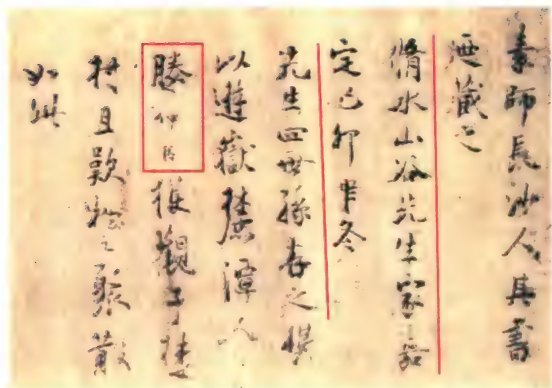 素師長沙人其書
迺藏之
脩水山谷先生家嘉
定己卯中冬
先生四世孫之
以遊嶽麓潭人
滕仲獲觀于
且歎物之聚散
如此